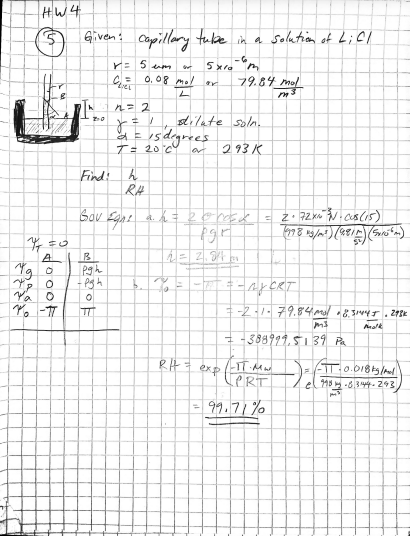 HW4
5 Given: Capillary tube in a solution of LiCl
r = 5 um or 5x10⁻⁶m
C_LiCl = 0.08 mol/L or 79.84 mol/m³
n = 2
γ = 1, dilute soln.
α = 15 degrees
T = 20°C or 293K
r
B
h
A
z=0
Find: h
RH
Gov Eqns a. h = 2σ cosα / ρgr = 2·72x10⁻³N·cos(15) / (998 kg/m³)(9.81 m/s²)(5x10⁻⁶m)
h = 2.84 m
Ψ_T = 0
A B
Ψg 0 ρgh
Ψp 0 -ρgh
Ψa 0 0
Ψo -π π
b. Ψo = -π = -nγCRT
= -2·1·79.84 mol/m³ · 8.3144 J/molK · 293K
= -388999.5139 Pa
RH = exp(-π·Mw / ρRT) = e(-π·0.018 kg/mol / 998 kg/m³ · 8.344 · 293)
= 99.71%